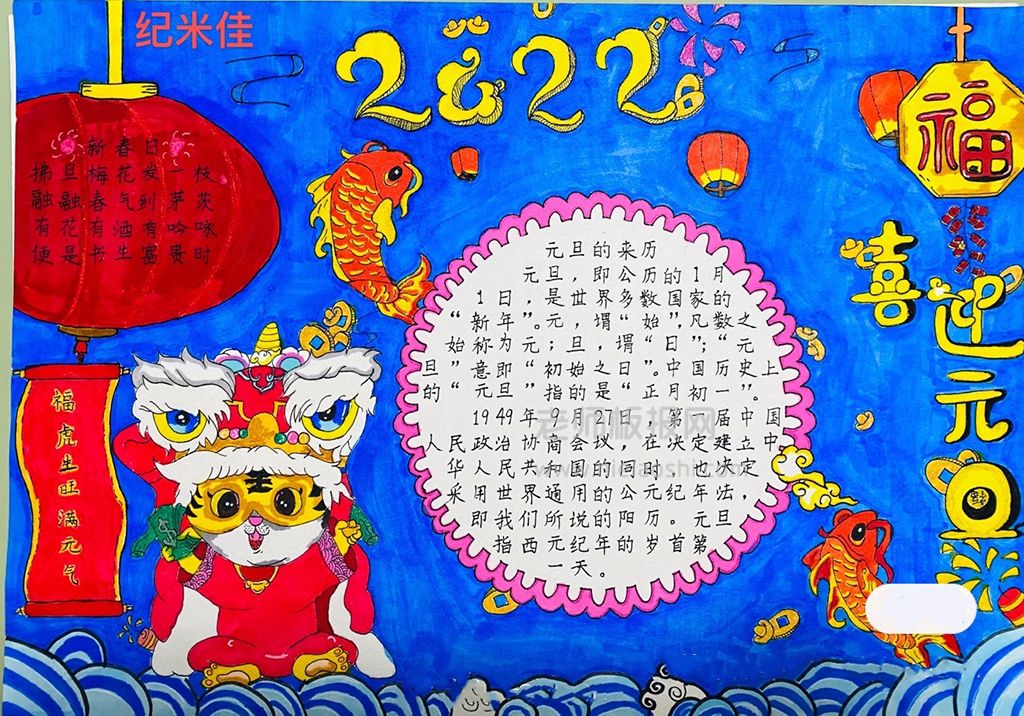 纪米佳
2022
福
新春日
拂旦梅花发一枝
融融春气到茅茨
有花有酒有吟咏
便是书生富贵时
喜迎元旦
福虎生旺满元气
王
元旦的来历
元旦，即公历的1月
1日，是世界多数国家的
“新年”。元，谓“始”，凡数之
始称为元；旦，谓“日”；“元
旦”意即“初始之日”。中国历史上
的“元旦”指的是“正月初一”。
1949年9月27日，第一届中国
人民政治协商会议，在决定建立中
华人民共和国的同时，也决定
采用世界通用的公元纪年法，
即我们所说的阳历。元旦
指西元纪年的岁首第
一天。
老师板报网